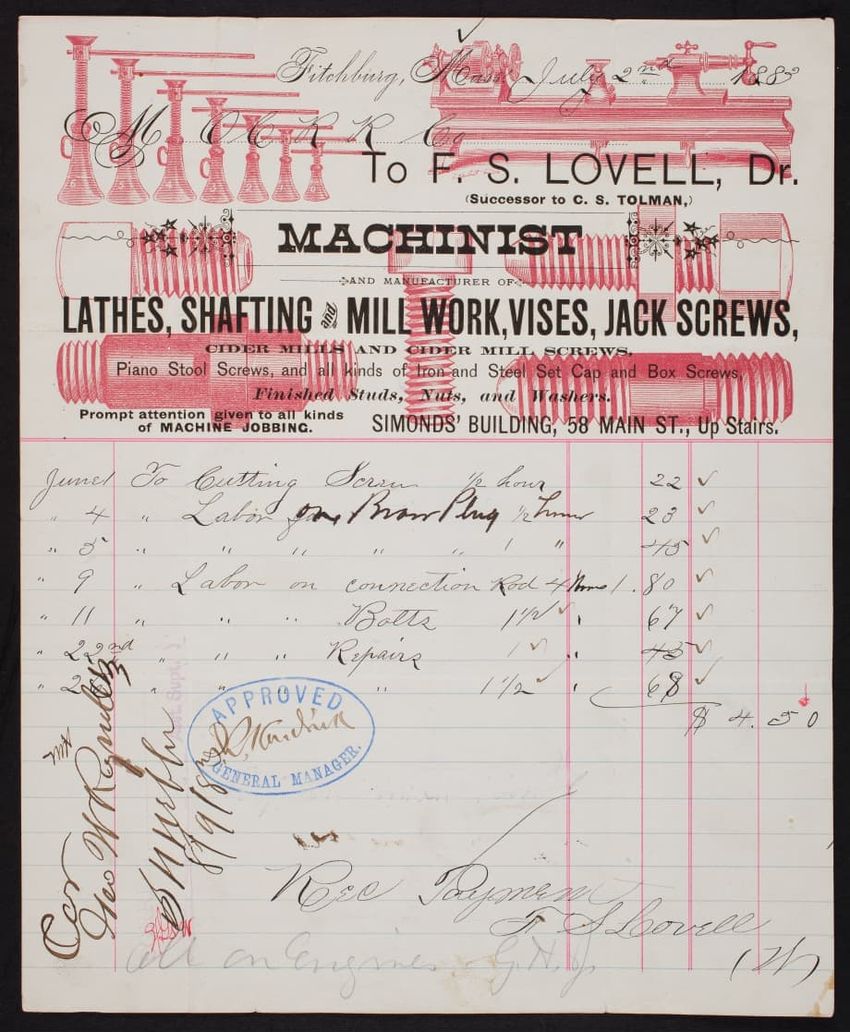 Fitchburg, Mass July 2nd 188
O M C R R Co
To F. S. LOVELL, Dr.
(Successor to C. S. TOLMAN,)
MACHINIST
AND MANUFACTURER OF
LATHES, SHAFTING and MILL WORK, VISES, JACK SCREWS,
CIDER MILLS AND CIDER MILL SCREWS.
Piano Stool Screws, and all kinds of Iron and Steel Set Cap and Box Screws,
Finished Studs, Nuts, and Washers.
Prompt attention given to all kinds
of MACHINE JOBBING.
SIMONDS' BUILDING, 58 MAIN ST., Up Stairs.
June 1 To Cutting Screw 1/2 hour 22
" 4 " Labor on Brass Plug 1/2 hour 23
" 5 " " " " " 1 " 45
" 9 " Labor on connection Rod 4 hours 1.80
" 11 " " " Bolts 1 1/2 " 67
" 22nd " " " Repairs 1 " 45
" " " " " 1 1/2 " 68
$ 4.50
APPROVED
GENERAL MANAGER.
Cor
Geo W
8/9/8
Rec Payment
F S Lovell
(W)
all on Engines